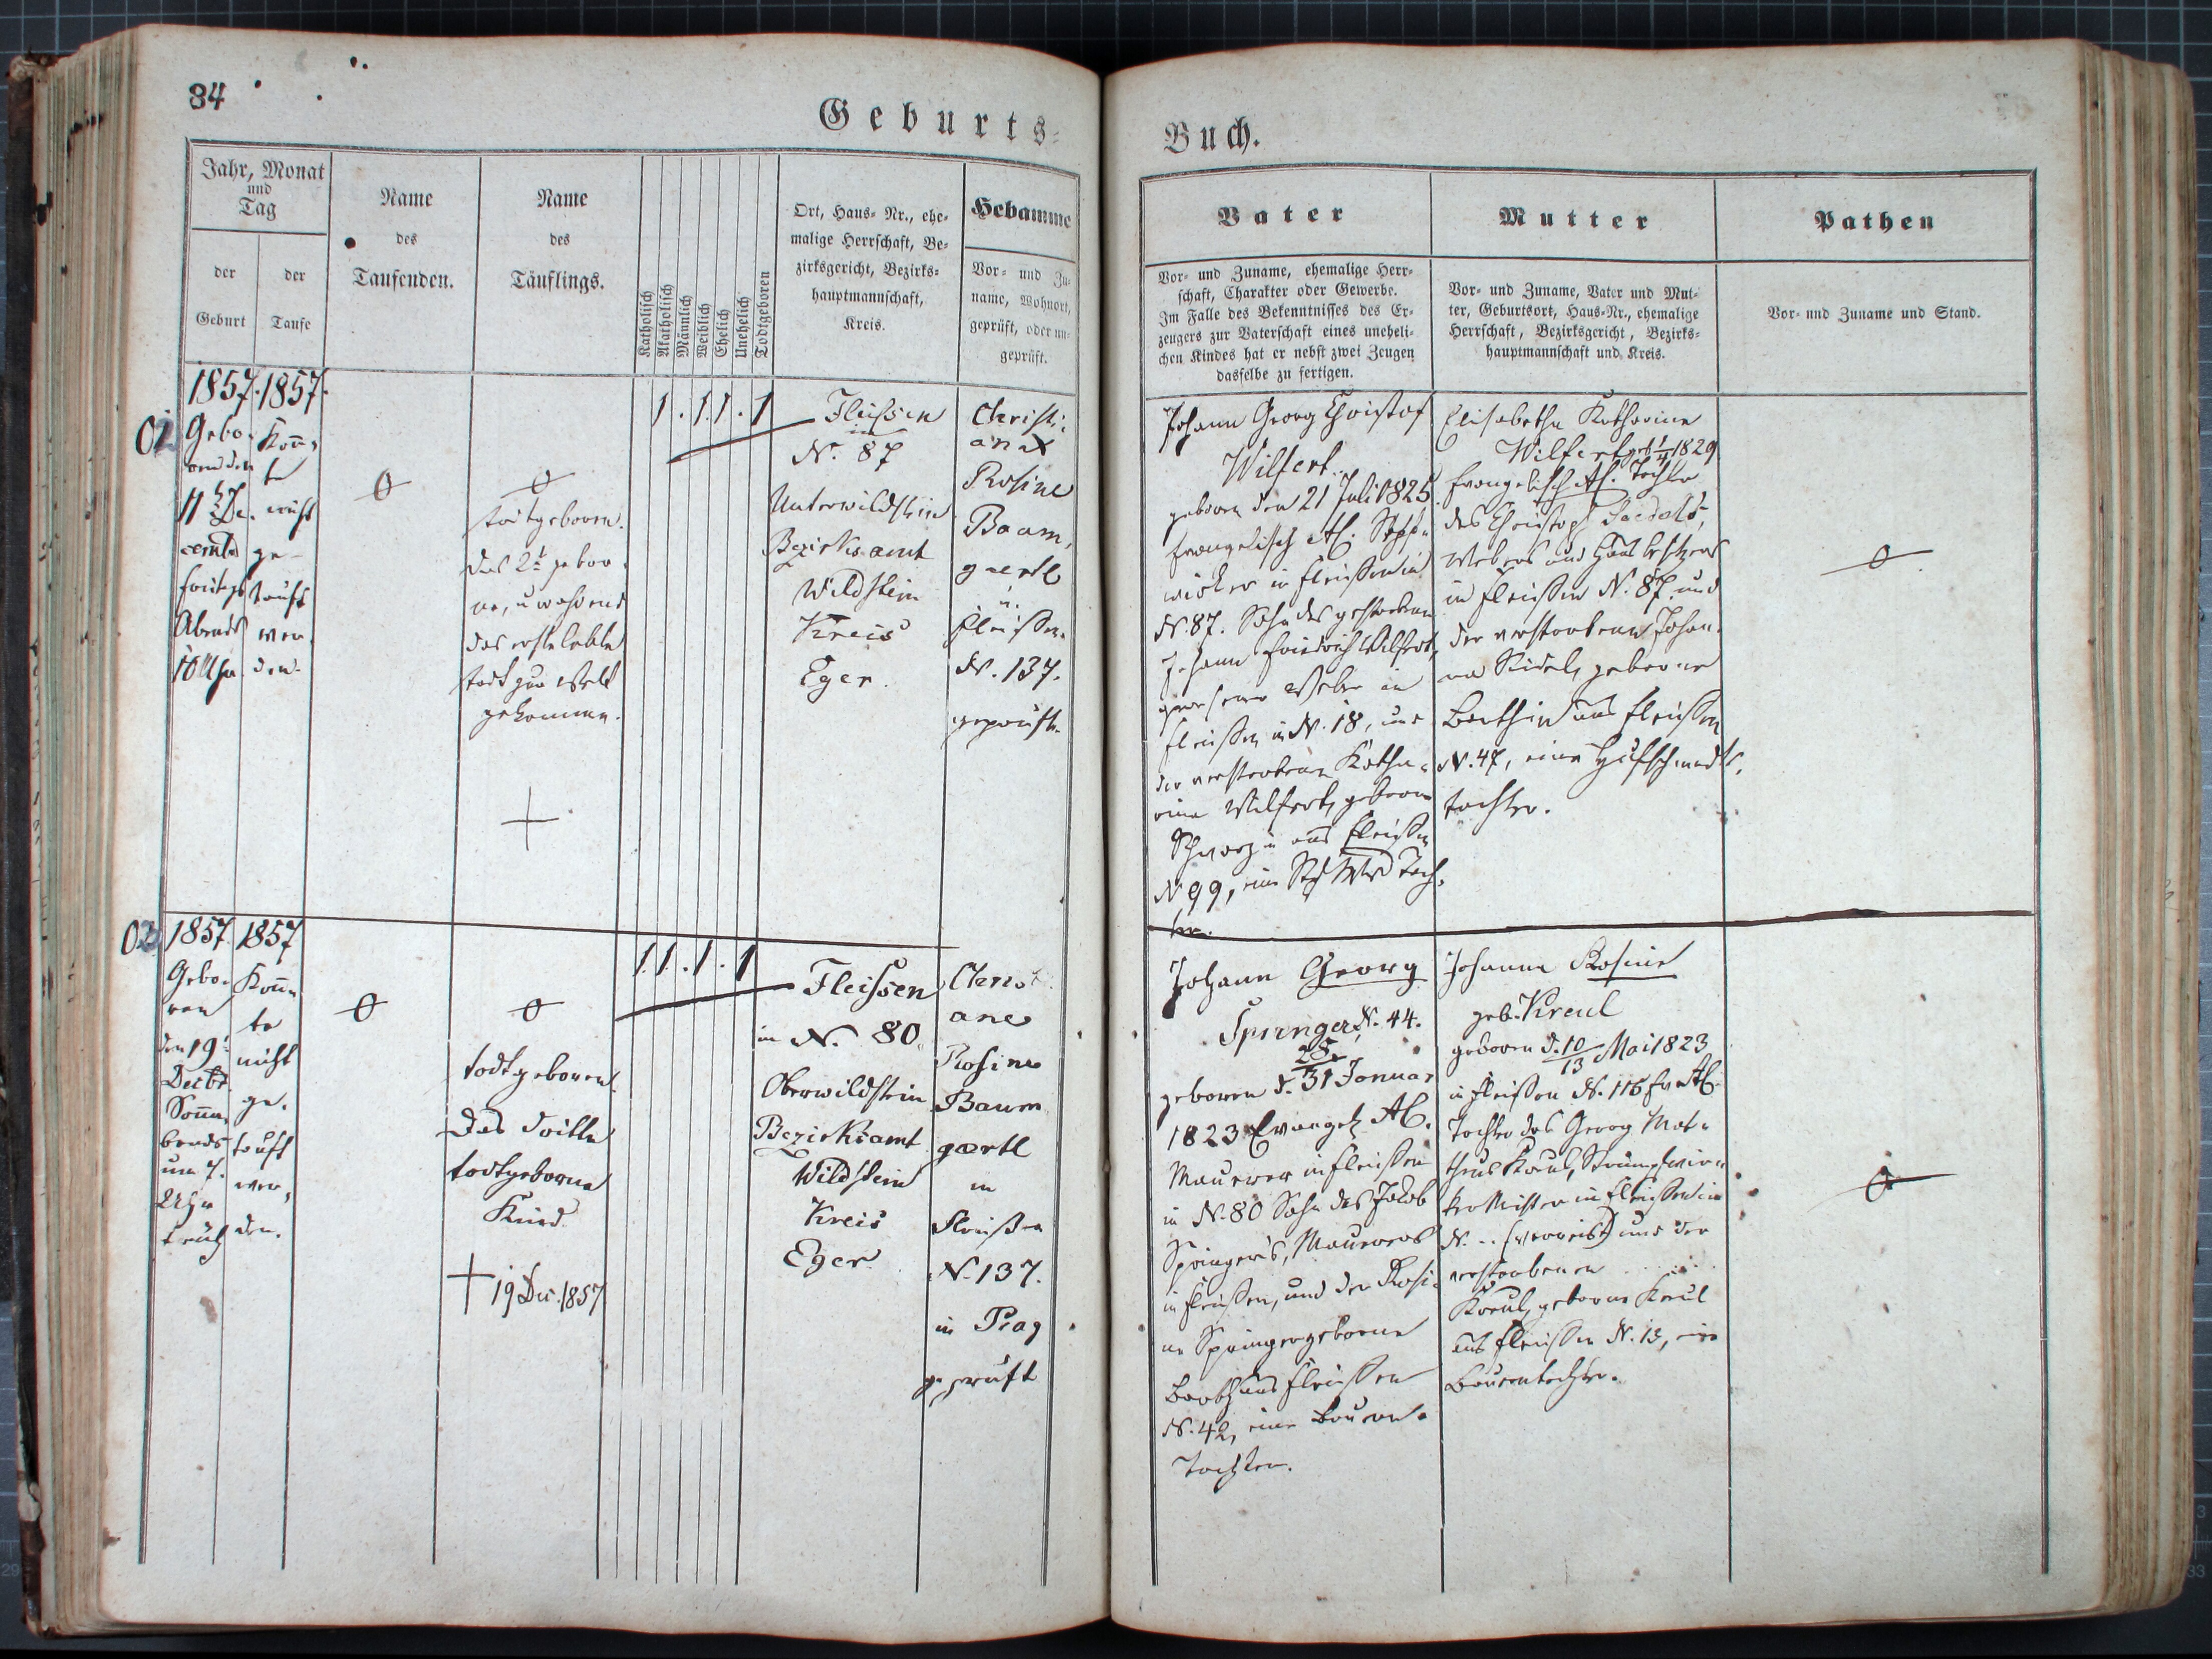 84
Geburts-
Jahr, Monat
und
Tag
der
Geburt
der
Taufe
Name
des
Taufenden.
Name
des
Täuflings.
Katholisch
Akatholisch
Männlich
Weiblich
Ehelich
Unehelich
Todtgeboren
Ort, Haus- Nr., ehe-
malige Herrschaft, Be-
zirksgericht, Bezirks-
hauptmannschaft,
Kreis.
Hebamme
Vor- und Zu-
name, Wohnort,
geprüft, oder un-
geprüft.
1857.
Gebo-
ren den
11
Abends
10 Uhr.
1857.
Konn-
te
nicht
ge-
tauft
wer-
den.
todtgeboren.
das 2te gebor-
ne, u während
das erste lebte
todt zur Welt
gekommen.
1 . 1 . 1 . 1
Fleissen
in
N. 87
Unterwildstein
Bezirksamt
Wildstein
Kreis
Eger.
Christi-
ana
Rosine
Baum-
gaertl
in
Fleißen
N. 137.
geprüft.
1857
Gebo-
ren
den 19t
Decbr
Sonna-
bends
um 7.
Uhr
früh
1857
Konn-
te
nicht
ge-
tauft
wer-
den.
todtgeboren.
Das dritte
todtgeborne
Kind.
19 Dec. 1857
1 . 1 . 1 . 1
Fleissen
in N. 80
Oberwildstein
Bezirksamt
Wildstein
Kreis
Eger.
Christ
ane
Rosine
Baum
gærtl
in
Fleißen
N. 137.
in Prag
geprüft
Buch.
Vater
Vor- und Zuname, ehemalige Herr-
schaft, Charakter oder Gewerbe.
Im Falle des Bekenntnisses des Er-
zeugers zur Vaterschaft eines uneheli-
chen Kindes hat er nebst zwei Zeugen
dasselbe zu fertigen.
Mutter
Vor- und Zuname, Vater und Mut-
ter, Geburtsort, Haus-Nr., ehemalige
Herrschaft, Bezirksgericht, Bezirks-
hauptmannschaft und Kreis.
Pathen
Vor- und Zuname und Stand.
Johann Georg Christof
Wilfert.
geboren den 21 Juli 1825
Evangelisch AC.
wirker in Fleißen in
N. 87. Sohn des gestorbenen
Johann Friedrich Wilfert,
gewesener Weber in
Fleißen in N. 18, und
der verstorbenen Katha-
rina Wilfert, geborne
aus Fleißen
N 99, eine Toch-
ter.
Elisabetha Katharina
Wilfert geb 1/4 1829
Evangelisch AC. Tochter
des Christoph
Webers und Hausbesitzers
in Fleißen N. 87. und
der verstorbenen Johan-
na geborne
aus Fleißen
N. 47, eine Hufschmidts-
tochter.
Johann Georg
Springer N. 44.
28.
geboren d. 31 Januar
1823 Evangel. AC.
Maurer in Fleißen
in N. 80 Sohn des Jakob
Springer's, Maurers
in Fleißen, und der Rosi-
na Springer geborne
aus Fleißen
N. 42, eine Bauern-
tochter.
Johanna Rosine
geb. Kreul
geboren d. 10/13 Mai 1823
in Fleißen N. 116 Ev. AC.
Tochter des Georg Mat-
theus Kreul, Strumpfwir-
ker Meister in Fleißen in
N. .. (verreist) und der
verstorbenen . . . . .
Kreul, geborne Kreul
aus Fleißen N. 13, eine
Bauerntochter.